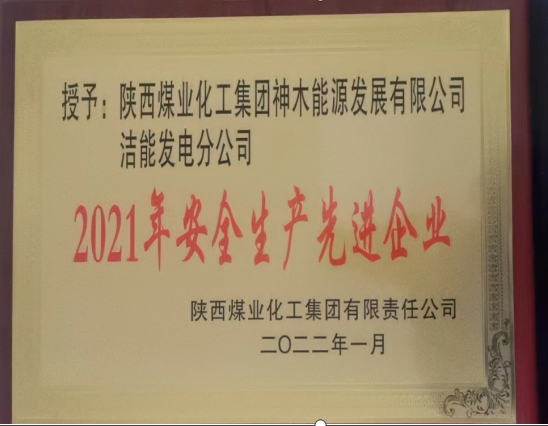 授予：陕西煤业化工集团神木能源发展有限公司
洁能发电分公司
2021年安全生产先进企业
陕西煤业化工集团有限责任公司
二〇二二年一月